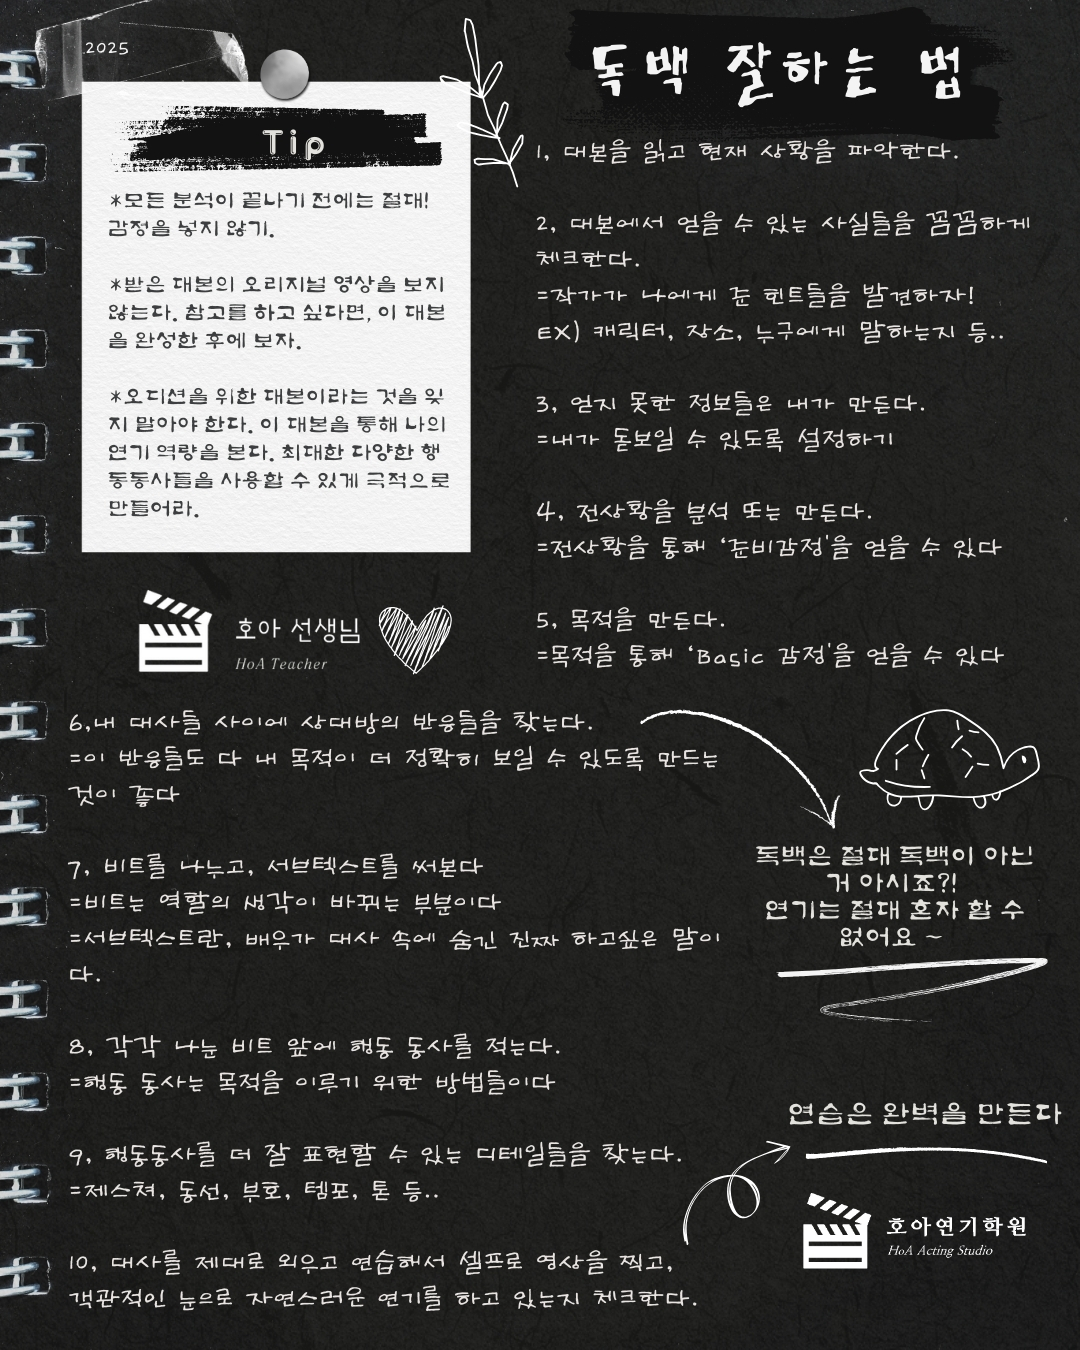 2025
Tip
*모든 분석이 끝나기 전에는 절대!
감정을 넣지 않기.
*받은 대본의 오리지널 영상을 보지
않는다. 참고를 하고 싶다면, 이 대본
을 완성한 후에 보자.
*오디션을 위한 대본이라는 것을 잊
지 말아야 한다. 이 대본을 통해 나의
연기 역량을 본다. 최대한 다양한 행
동동사들을 사용할 수 있게 극적으로
만들어라.
호아 선생님
HoA Teacher
독백 잘하는 법
1, 대본을 읽고 현재 상황을 파악한다.
2, 대본에서 얻을 수 있는 사실들을 꼼꼼하게
체크한다.
=작가가 나에게 준 힌트들을 발견하자!
EX) 캐릭터, 장소, 누구에게 말하는지 등..
3, 얻지 못한 정보들은 내가 만든다.
=내가 돋보일 수 있도록 설정하기
4, 전상황을 분석 또는 만든다.
=전상황을 통해 ‘준비감정'을 얻을 수 있다
5, 목적을 만든다.
=목적을 통해 ‘Basic 감정'을 얻을 수 있다
6,내 대사들 사이에 상대방의 반응들을 찾는다.
=이 반응들도 다 내 목적이 더 정확히 보일 수 있도록 만드는
것이 좋다
7, 비트를 나누고, 서브텍스트를 써본다
=비트는 역할의 생각이 바뀌는 부분이다
=서브텍스트란, 배우가 대사 속에 숨긴 진짜 하고싶은 말이
다.
8, 각각 나눈 비트 앞에 행동 동사를 적는다.
=행동 동사는 목적을 이루기 위한 방법들이다
9, 행동동사를 더 잘 표현할 수 있는 디테일들을 찾는다.
=제스쳐, 동선, 부호, 템포, 톤 등..
10, 대사를 제대로 외우고 연습해서 셀프로 영상을 찍고,
객관적인 눈으로 자연스러운 연기를 하고 있는지 체크한다.
독백은 절대 독백이 아닌
거 아시죠?!
연기는 절대 혼자 할 수
없어요 ~
연습은 완벽을 만든다
호아연기학원
HoA Acting Studio